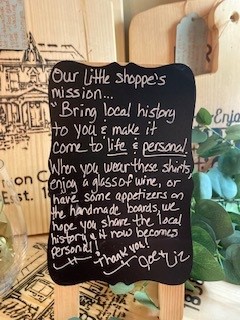 Our little shoppe's
mission...
"Bring local history
to you & make it
come to life & personal.
When you wear these shirts,
enjoy a glass of wine, or
have some appetizers on
the handmade boards, we
hope you share the local
history & it now becomes
personal!
Thank you!
Joe & Liz
on C
East.
Enjoy